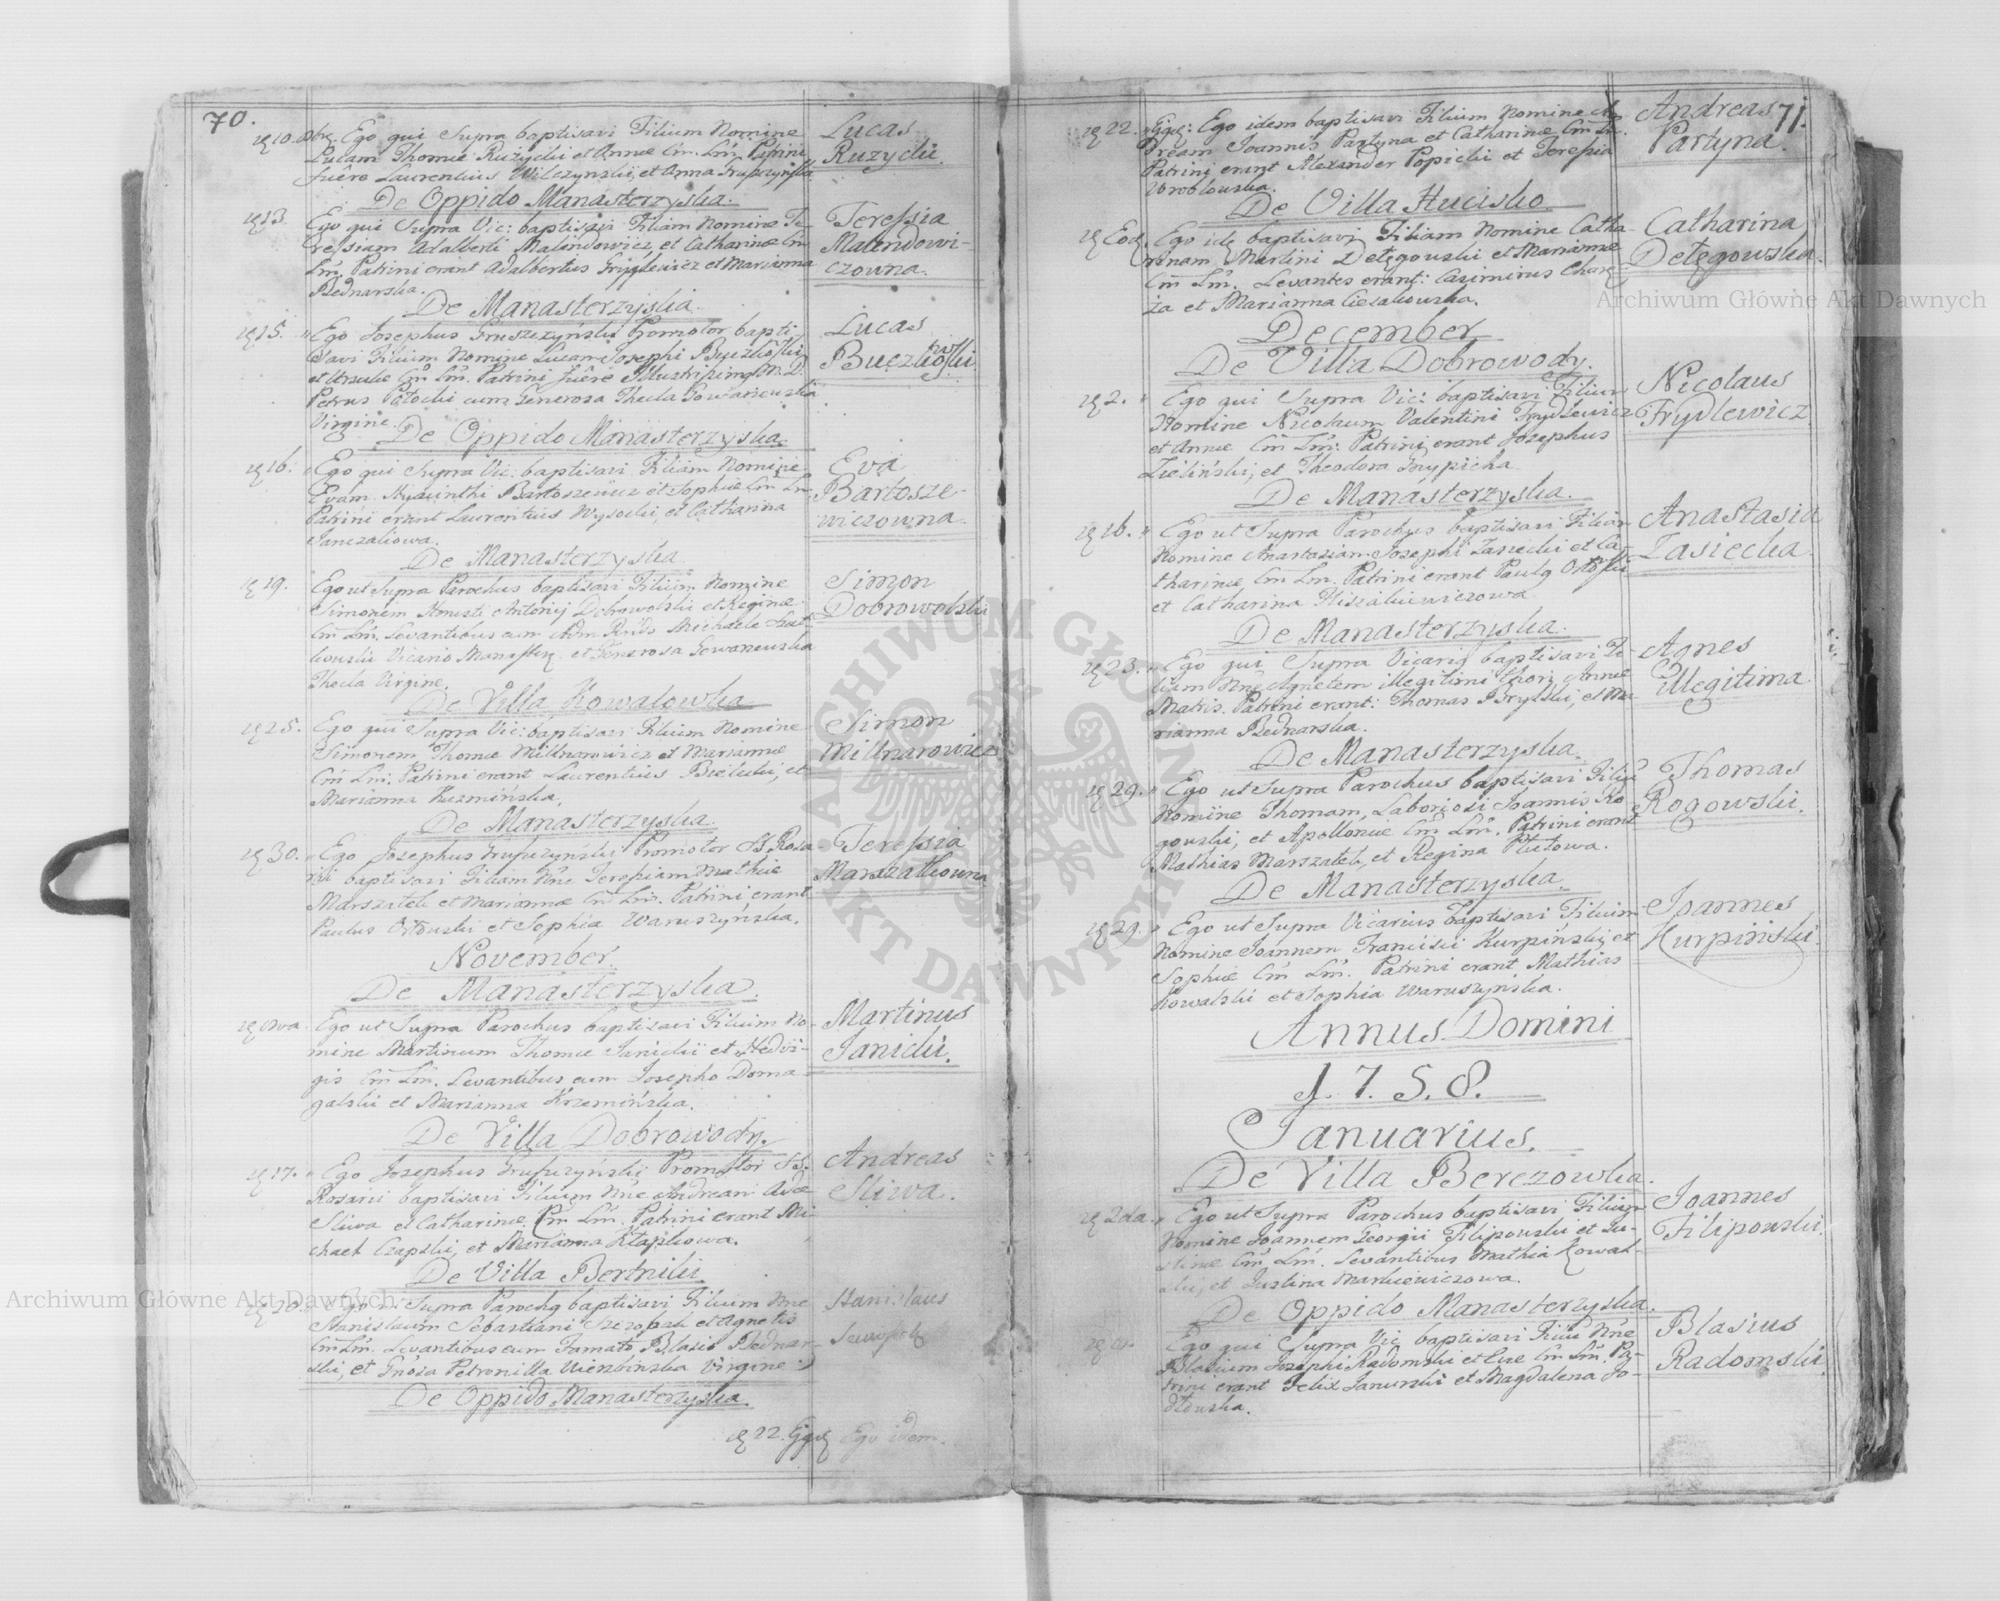 70.
10. Obr. Ego qui Supra baptisavi Filium Nomine
Lucam Thomæ Ruzycki et Annæ Cm. Lm. Patrini
fuere Laurentius Wilczynski, et Anna Gruszynska
Lucas
Ruzycki.
De Oppido Manasterzyska.
13. Ego qui Supra Vic: baptisavi Filiam Nomine Te-
ressiam Adalberti Malindowicz et Catharinæ Cm
Lm. Patrini erant Adalbertus Gryglewicz et Marianna
Bednarska.
Teressia
Malindowi-
czowna.
De Manasterzyska.
15. Ego Josephus Gruszczynski Promotor bapti-
savi Filium Nomine Lucam Josephi Buczkowski
et Ursulæ Cm Lm. Patrini fuere Illustrissimq M. D.
Petrus Potocki cum Generosa Thecla Gowarewska
Virgine.
Lucas
Buczkowski.
De Oppido Manasterzyska.
16. Ego qui Supra Vic: baptisavi Filiam Nomine
Evam Hyacinthi Bartoszewicz et Sophiæ Cm Lm
Patrini erant Laurentius Wysocki, et Catharina
Janczaliowa.
Eva
Bartosze-
wiczowna.
De Manasterzyska
19. Ego ut Supra Parochus baptisavi Filium Nomine
Simonem Antonij Dobrowolski et Reginæ
Cm Lm. Levantibus eum Adm Rndo Michaele
Vicario et Generosa Gowarewska
Thecla Virgine.
Simon
Dobrowolski
De Villa Kowalowka
25. Ego qui Supra Vic: baptisavi Filium Nomine
Simonem Thomæ Millnarowicz et Mariannæ
Cm Lm: Patrini erant Laurentius Bielecki, et
Marianna Kuzminska.
Simon
Millnarowicz
De Manasterzyska.
30. Ego Josephus Gruszczynski Promotor SS. Rosa-
rii baptisavi Filiam Nne Teressiam Mathiæ
Marszalek et Mariannæ Cm Lm. Patrini erant
Paulus Ortowski et Sophia Waruszynska.
Teressia
Marszalkowna
November.
De Manasterzyska.
Ego ut Supra Parochus baptisavi Filium No-
mine Martinum Thomæ Janicki et Hedvi-
gis Cm Lm. Levantibus eum Josepho Doma-
galski et Marianna Krzeminska.
Martinus
Janicki.
De Villa Dobrowody.
17. Ego Josephus Gruszczynski Promotor SS.
Rosarii baptisavi Filium Nne Andream Adæ
Sliwa et Catharinæ Cm Lm. Patrini erant Mi-
chael Czapski, et Marianna Klapkowa.
Andreas
Sliwa.
De Villa Bertniki
20. Ego ut Supra Parochq baptisavi Filium Nne
Stanislaum Sebastiani et Agnetis
Cm Lm. Levantibus eum Famato Blasio Bednar-
ski, et Gnosa Petronilla Wierzbinska Virgine.
Stanislaus
De Oppido Manasterzyska.
22. Ego idem.
71.
22. Ego idem baptisavi Filium Nomine An-
dream Joannis Partyna et Catharinæ Cm Lm.
Patrini erant Alexander Popicki et Teressia
Wroblowska.
Andreas
Partyna.
De Villa Hucisko
Eod. Ego idem baptisavi Filiam Nomine Catha-
rinam Martini Detęgowski et Mariannæ
Cm Lm. Levantes erant: Casimirus
et Marianna
Catharina
Detęgowska.
December
De Villa Dobrowody.
2. Ego qui Supra Vic: baptisavi Filium
Nomine Nicolaum Valentini Frydlewicz
et Annæ Cm Lm: Patrini erant Josephus
Zielinski, et Theodora
Nicolaus
Frydlewicz
De Manasterzyska.
16. Ego ut Supra Parochus baptisavi Filiam
Nomine Anastasiam Josephi Zasiecki et Ca-
tharinæ Cm Lm. Patrini erant Paulq Ortowski
et Catharina
Anastasia
Zasiecka
De Manasterzyska.
23. Ego qui Supra Vicariq baptisavi Fi-
liam Nne Agnetem illegitimi thori Annæ
Matris. Patrini erant: Thomas Brylski, et Ma-
rianna Bednarska.
Agnes
Illegitima
De Manasterzyska.
29. Ego ut Supra Parochus baptisavi Filiu
Nomine Thomam, Laboriosi Joannis Ro-
gowski, et Apolloniæ Cm Lm. Patrini erant
Mathias Marszalek, et Regina Plutowa.
Thomas
Rogowski.
De Manasterzyska.
29. Ego ut Supra Vicarius baptisavi Filium
Nomine Joannem Francisci Kurpinski, et
Sophiæ Cm Lm. Patrini erant Mathias
Kowalski et Sophia Waruszynska.
Joannes
Kurpinski.
Annus Domini
1.7.5.8.
Januarius.
De Villa Berezowka.
2da. Ego ut Supra Parochus baptisavi Filium
Nomine Joannem Georgii Filipowski et Ju-
stinæ Cm Lm. Levantibus Mathia Kowal-
ski, et Justina Markiewiczowa.
Joannes
Filipowski.
De Oppido Manasterzyska.
Ego qui Supra Vic baptisavi Filiu Nne
Blasium Josephi Radomski et Evæ Cm Lm. Pa-
trini erant Felix Janurski et Magdalena
Blasius
Radomski.
Archiwum Główne Akt Dawnych
Archiwum Główne Akt Dawnych
ARCHIWUM GŁÓWNE AKT DAWNYCH